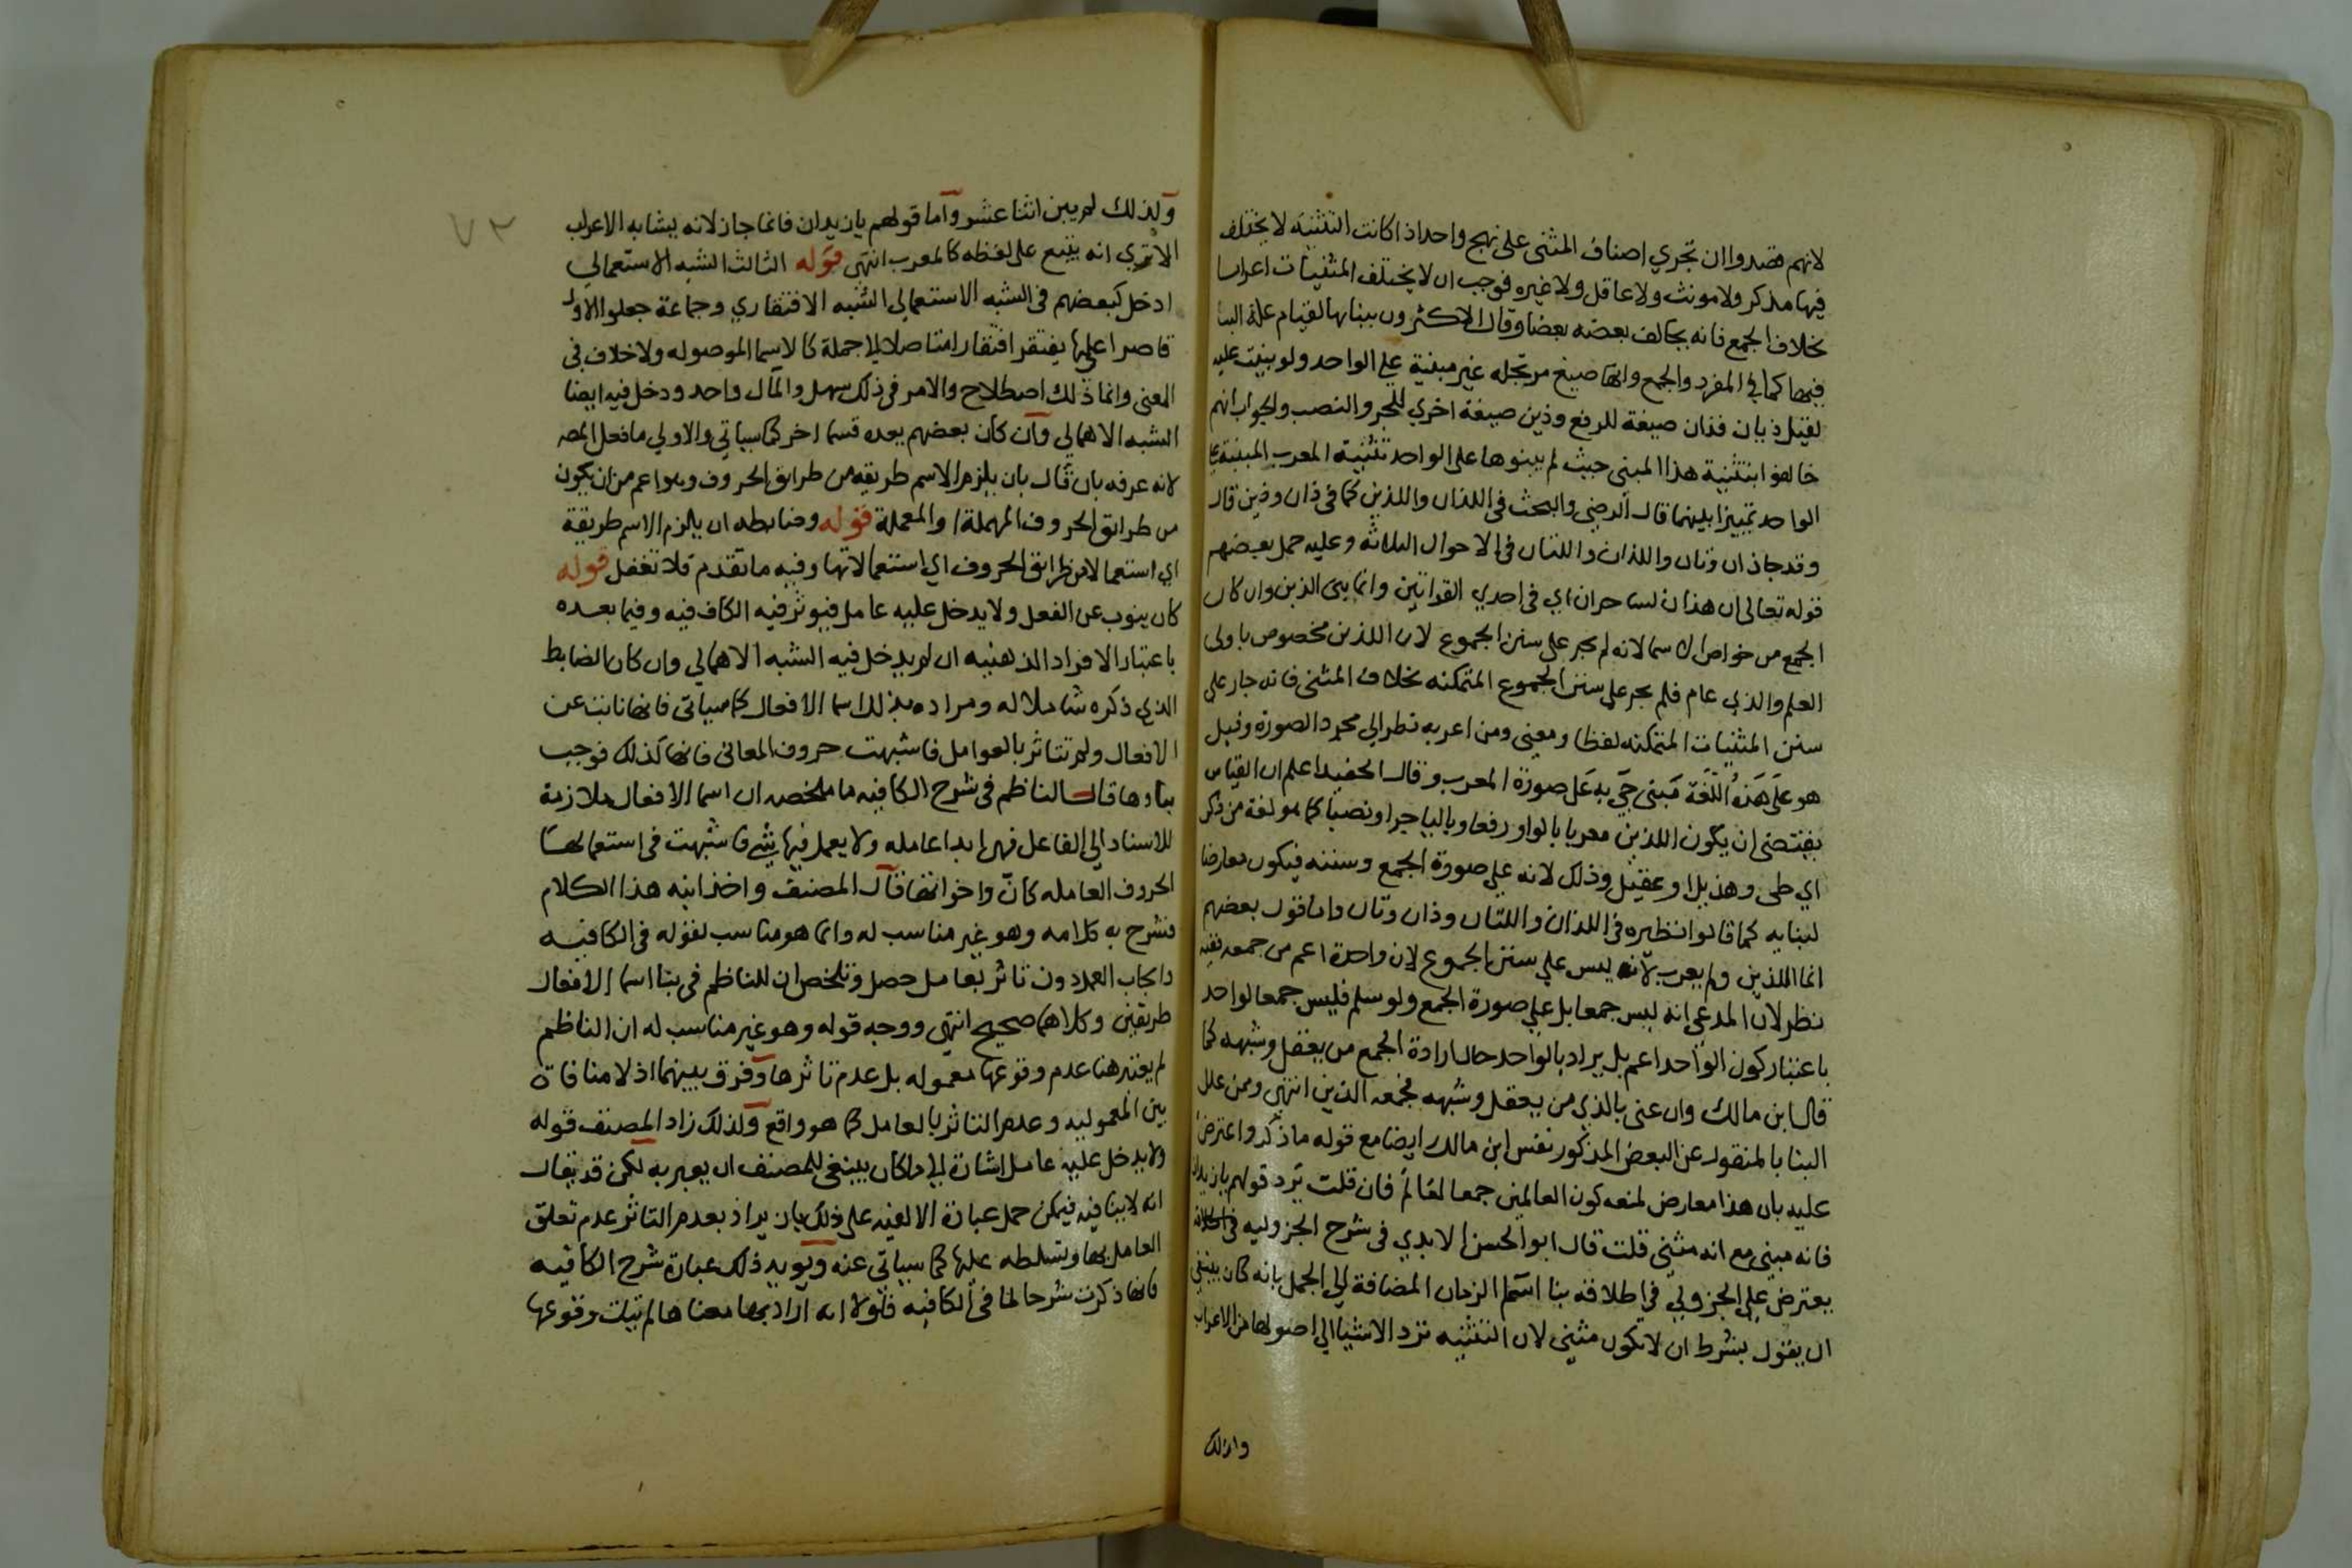 لانهم قصدوا ان تجري اصناف المثنى على نهج واحد اذا كانت التثنية لا يختلف
فيها مذكر ولا مونث ولا عاقل ولا غيره فوجب ان لا يختلف المثنيات اعرابا
بخلاف الجمع فانه يخالف بعضه بعضا وقال الاكثرون ببنايها لقيام علة البنا
فيها كما في المفرد والجمع وانها صيغ مرتجله غير مبنية على الواحد ولو بنيت عليه
لقيل ذيان فذان صيغة للرفع وذين صيغة اخري للجر والنصب والجواب انهم
خالفوا بتثنية هذا المبنى حيث لم يبنوها على الواحد تثنية المعرب المبنية على
الواحد تمييزا بينهما قال الرضى والبحث في اللذان واللذين كما في ذان وذين قال
وقد جاذان وتان واللذان واللتان في الاحوال الثلاثه وعليه حمل بعضهم
قوله تعالى ان هذان لساحران اي في احدي القرائتين وانما بنى الذين وان كان
الجمع من خواص الاسما لانه لم يجر على سنن الجموع لان اللذين مخصوص باولى
العلم والذي عام فلم يجر على سنن الجموع المتمكنه بخلاف المثنى فانه جار على
سنن المثنيات المتمكنه لفظا ومعنى ومن اعربه نظر الي مجرد الصورة وقيل
هو على هذه اللغة مبنى جي به على صورة المعرب وقال الحفيد اعلم ان القياس
يقتضى ان يكون اللذين معربا بالواو رفعا وباليا جرا ونصبا كما هو لغة من ذكر
اي طى وهذيل او عقيل وذلك لانه على صورة الجمع وسننه فيكون معارضا
لبنايه كما قالوا نظيره في اللذان واللتان وذان وتان واما قول بعضهم
انما اللذين ولم يعرب لانه ليس على سنن الجموع لان واحدة اعم من جمعه ففيه
نظر لان المدعى انه ليس جمعا بل على صورة الجمع ولو سلم فليس جمعا لواحد
باعتبار كون الواحد اعم بل يراد بالواحد حال ارادة الجمع من يعقل وشبهه كما
قال ابن مالك وان عنى بالذي من يعقل وشبهه فجمعه الذين انتهى وممن علل
البنا بالمنقول عن البعض المذكور نفس ابن مالك ايضا مع قوله ما ذكر واعترض
عليه بان هذا معارض لمنعه كون العالمين جمعا لعالم فان قلت يرد قولهم يا زيدان
فانه مبنى مع انه مثنى قلت قال ابو الحسن الابدي في شرح الجزوليه في
يعترض على الجزولي في اطلاقه بنا اسم الزمان المضافة الي الجمل بانه كان ينبغي
ان يقول بشرط ان لا يكون مثنى لان التثنيه ترد الاشيا الي اصولها من الاعراب
ولذلك
٧٢
ولذلك لم يبن اثنا عشر واما قولهم يا زيدان فانما جاز لانه يشابه الاعراب
الا ترى انه يتبع على لفظه كالمعرب انتهى قوله الثالث الشبه الاستعمالي
ادخل كبعضهم في الشبه الاستعمالي الشبه الافتقاري وجماعة جعلوا الاول
قاصرا على ما يفتقر افتقارا متاصلا الي جملة كالاسما الموصوله ولا خلاف في
المعنى وانما ذلك اصطلاح والامر في ذلك سهل والمآل واحد ودخل فيه ايضا
الشبه الاهمالي وان كان بعضهم يعده قسما اخر كما سياتي والاولي ما فعل المصـ
لانه عرفه بان قال بان يلزم الاسم طريقه من طرايق الحروف وهو اعم من ان يكون
من طرائق الحروف المهملة او المعملة قوله وضابطه ان يلزم الاسم طريقة
اي استعمالا من طرائق الحروف اي استعمالاتها وفيه ما تقدم فلا تغفل قوله
كان ينوب عن الفعل ولا يدخل عليه عامل فيوثر فيه الكاف فيه وفيما بعده
باعتبار الافراد الذهنيه ان لم يدخل فيه الشبه الاهمالي وان كان الضابط
الذي ذكره شاملا له ومراده بذلك اسما الافعال كما سياتى فانها نابت عن
الافعال ولم تتاثر بالعوامل فاشبهت حروف المعانى فانها كذلك فوجب
بناوها قال الناظم في شرح الكافيه ما ملخصه ان اسما الافعال ملازمة
للاسناد الي الفاعل فهى ابدا عامله ولا يعمل فيها شى فاشبهت في استعمالها
الحروف العامله كان واخواتها قال المصنف واخذ ابنه هذا الكلام
فشرح به كلامه وهو غير مناسب له وانما هو مناسب لقوله في الكافيه
وايجاب العمل دون تاثر بعامل حصل وتلخص ان للناظم في بنا اسما الافعال
طريقين وكلاهما صحيح انتهى ووجه قوله وهو غير مناسب له ان الناظم
لم يعتبر هنا عدم وقوعها معموله بل عدم تاثرها وفرق بينهما اذ لا منافاة
بين المعموليه وعدم التاثر بالعامل كما هو واقع ولذلك زاد المصنف قوله
ولا يدخل عليه عامل اشارة الي ما كان ينبغي للمصنف ان يعبر به لكن قد يقال
انه لا ينافيه فيمكن حمل عبارة الالفيه على ذلك بان يراد بعدم التاثر عدم تعلق
العامل بها وتسلطه عليها كما سياتى عنه ويويد ذلك عبارة شرح الكافيه
فانها ذكرت شرحا لما في الكافيه فلولا انه اراد بها معنا ها لم تبلت وقوعها